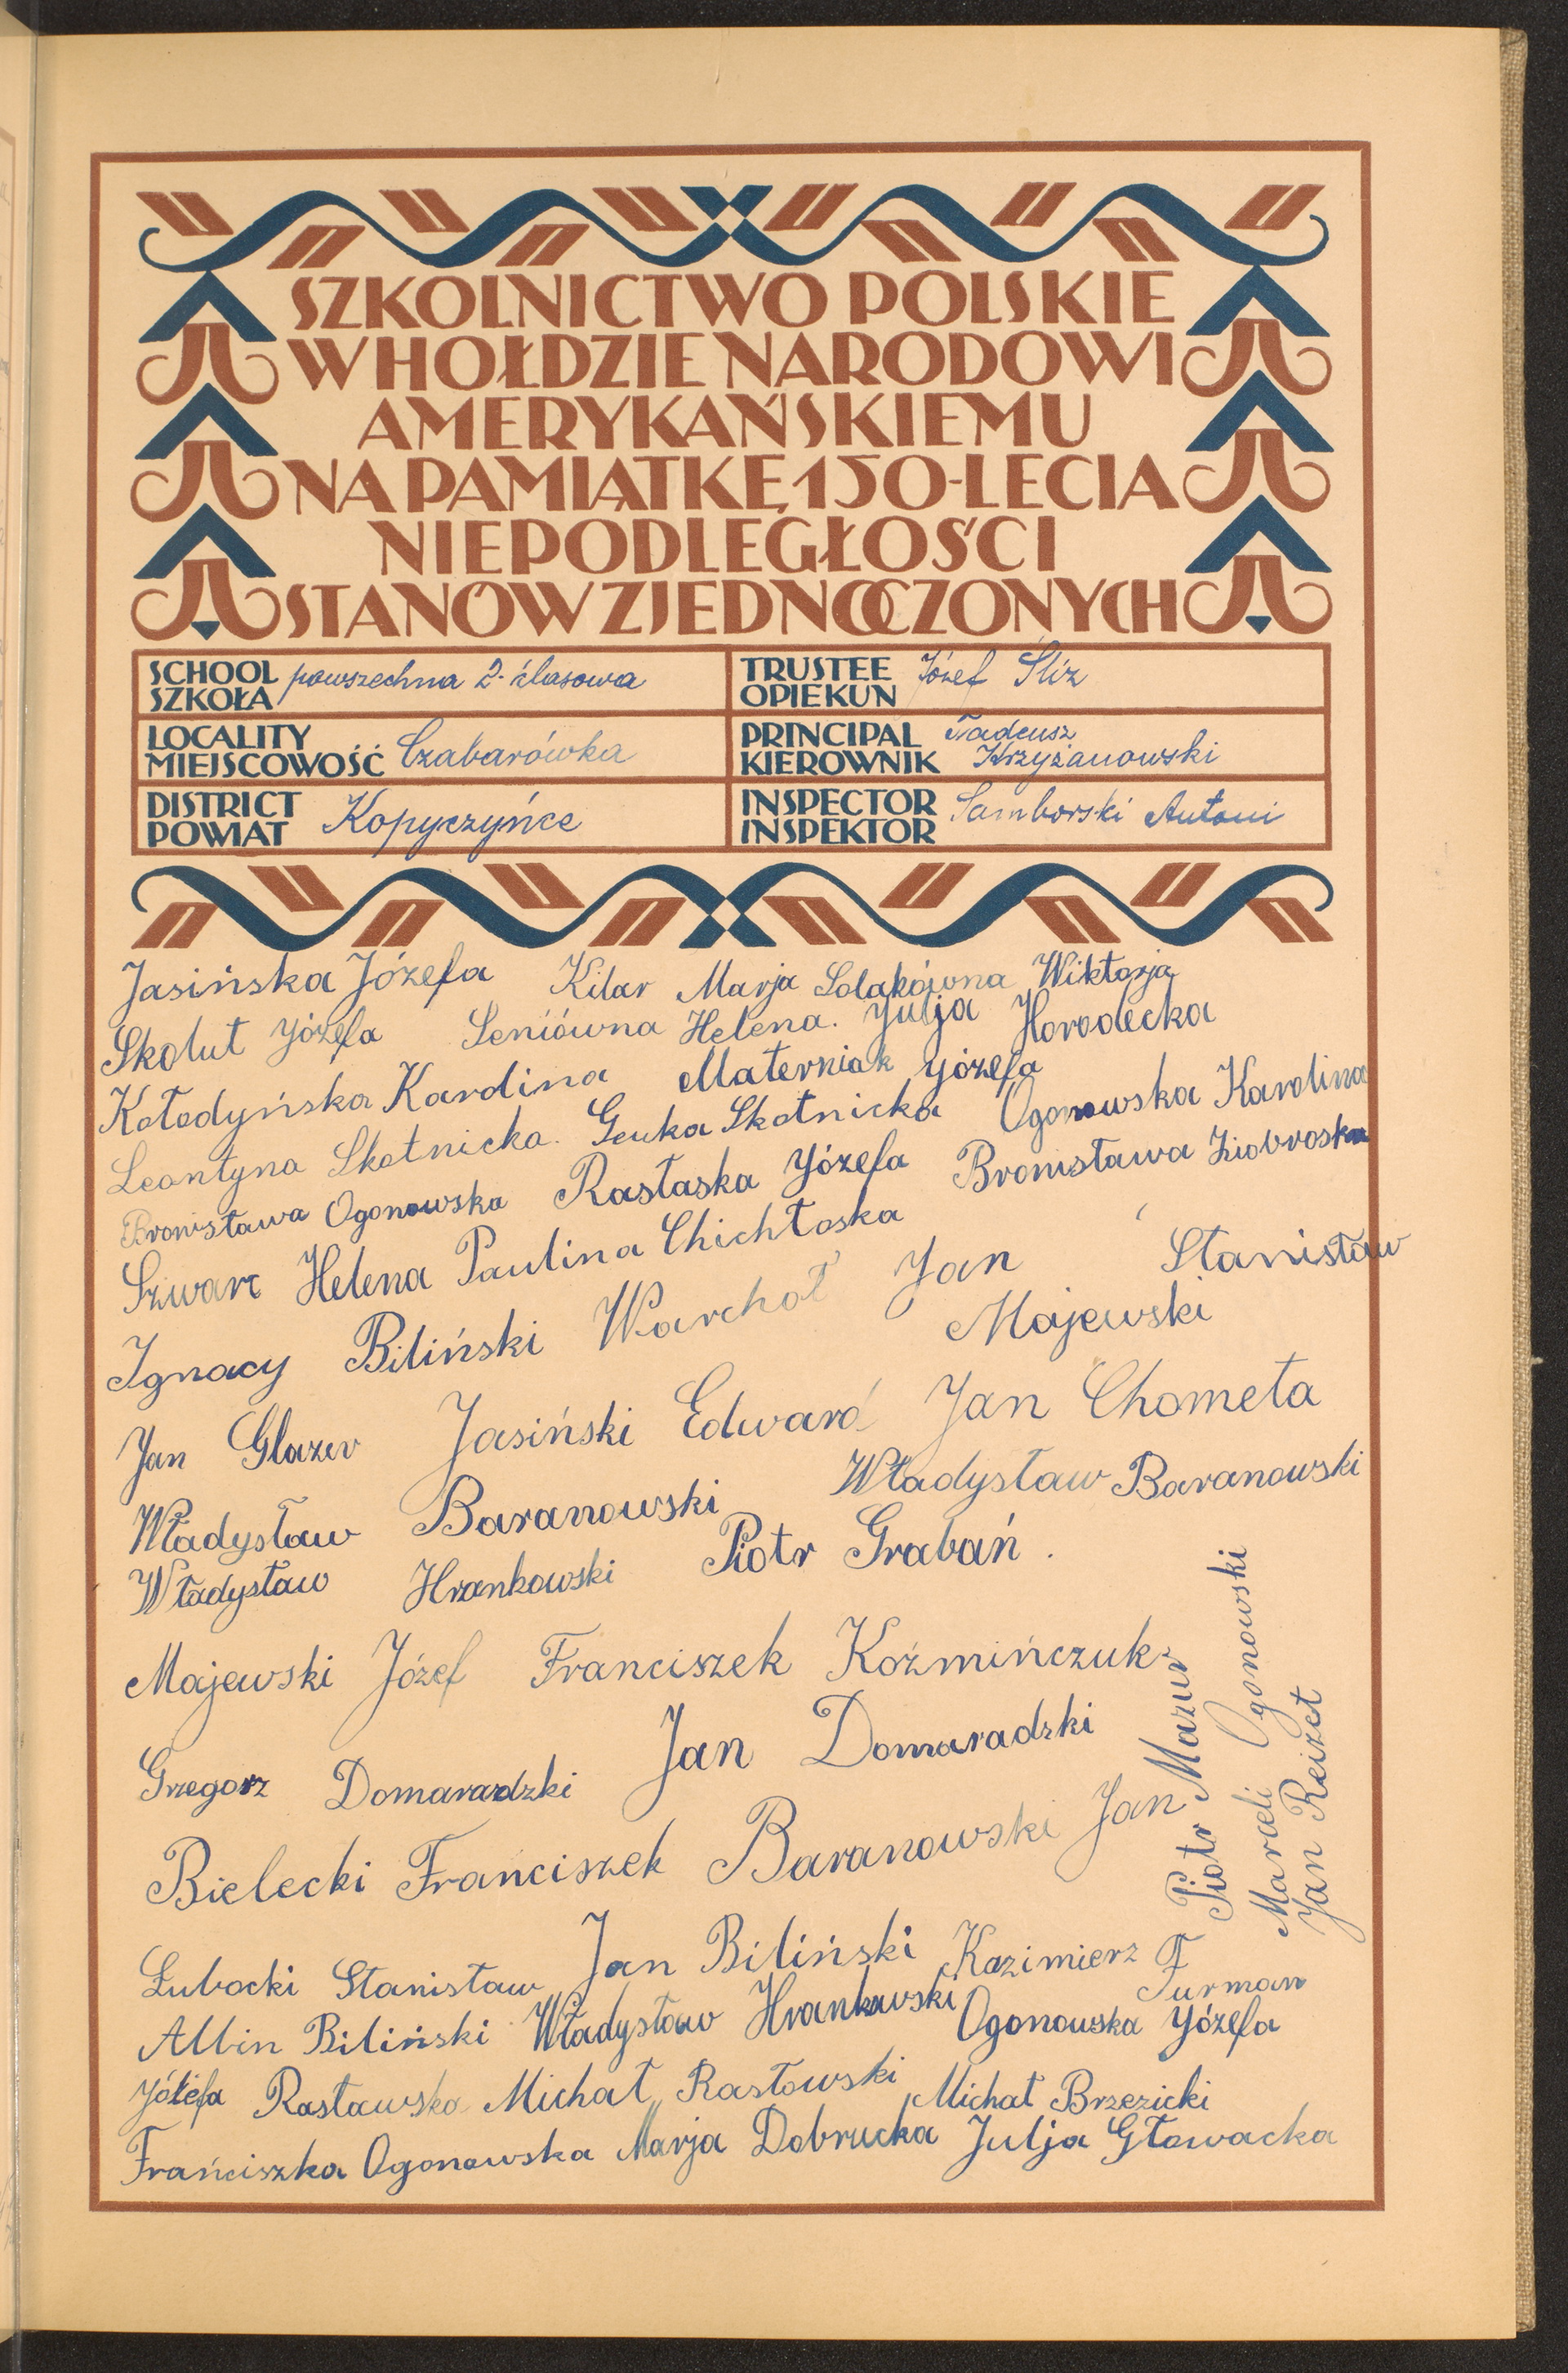 SZKOLNICTWO POLSKIE
W HOŁDZIE NARODOWI
AMERYKAŃSKIEMU
NA PAMIĄTKĘ 150-LECIA
NIEPODLEGŁOŚCI
STANÓW ZJEDNOCZONYCH
SCHOOL
SZKOŁA powszechna 2-klasowa
TRUSTEE
OPIEKUN Józef Śliz
LOCALITY
MIEJSCOWOŚĆ Czabarówka
PRINCIPAL Tadeusz
KIEROWNIK Krzyżanowski
DISTRICT
POWIAT Kopyczyńce
INSPECTOR
INSPEKTOR Samborski Antoni
Jasińska Józefa Kilar Marja Solakówna Wiktorja
Skolut Józefa Seniówna Helena. Julja Horodecka
Kołodyńska Karolina Materniak Józefa
Leontyna Skotnicka. Genka Skotnicka Ogonowska Karolina
Bronisława Ogonowska Rastaska Józefa Bronisława Ziobroska
Szwarc Helena Paulina Chichłoska
Ignacy Biliński Warchoł Jan Stanisław
Majewski
Jan Glazer Jasiński Edward Jan Chometa
Władysław Baranowski Władysław Baranowski
Władysław Hrankowski Piotr Grabań.
Majewski Józef Franciszek Koźmińczuk
Grzegorz Domaradzki Jan Domaradzki
Bielecki Franciszek Baranowski Jan
Piotr Mazur
Marceli Ogonowski
Jan Reizet
Łubocki Stanisław Jan Biliński Kazimierz F
Furman
Albin Biliński Władysław Hrankowski Ogonowska Józefa
Józefa Rastawska Michał Rastowski Michał Brzezicki
Franciszka Ogonowska Marja Dobrucka Julja Głowacka